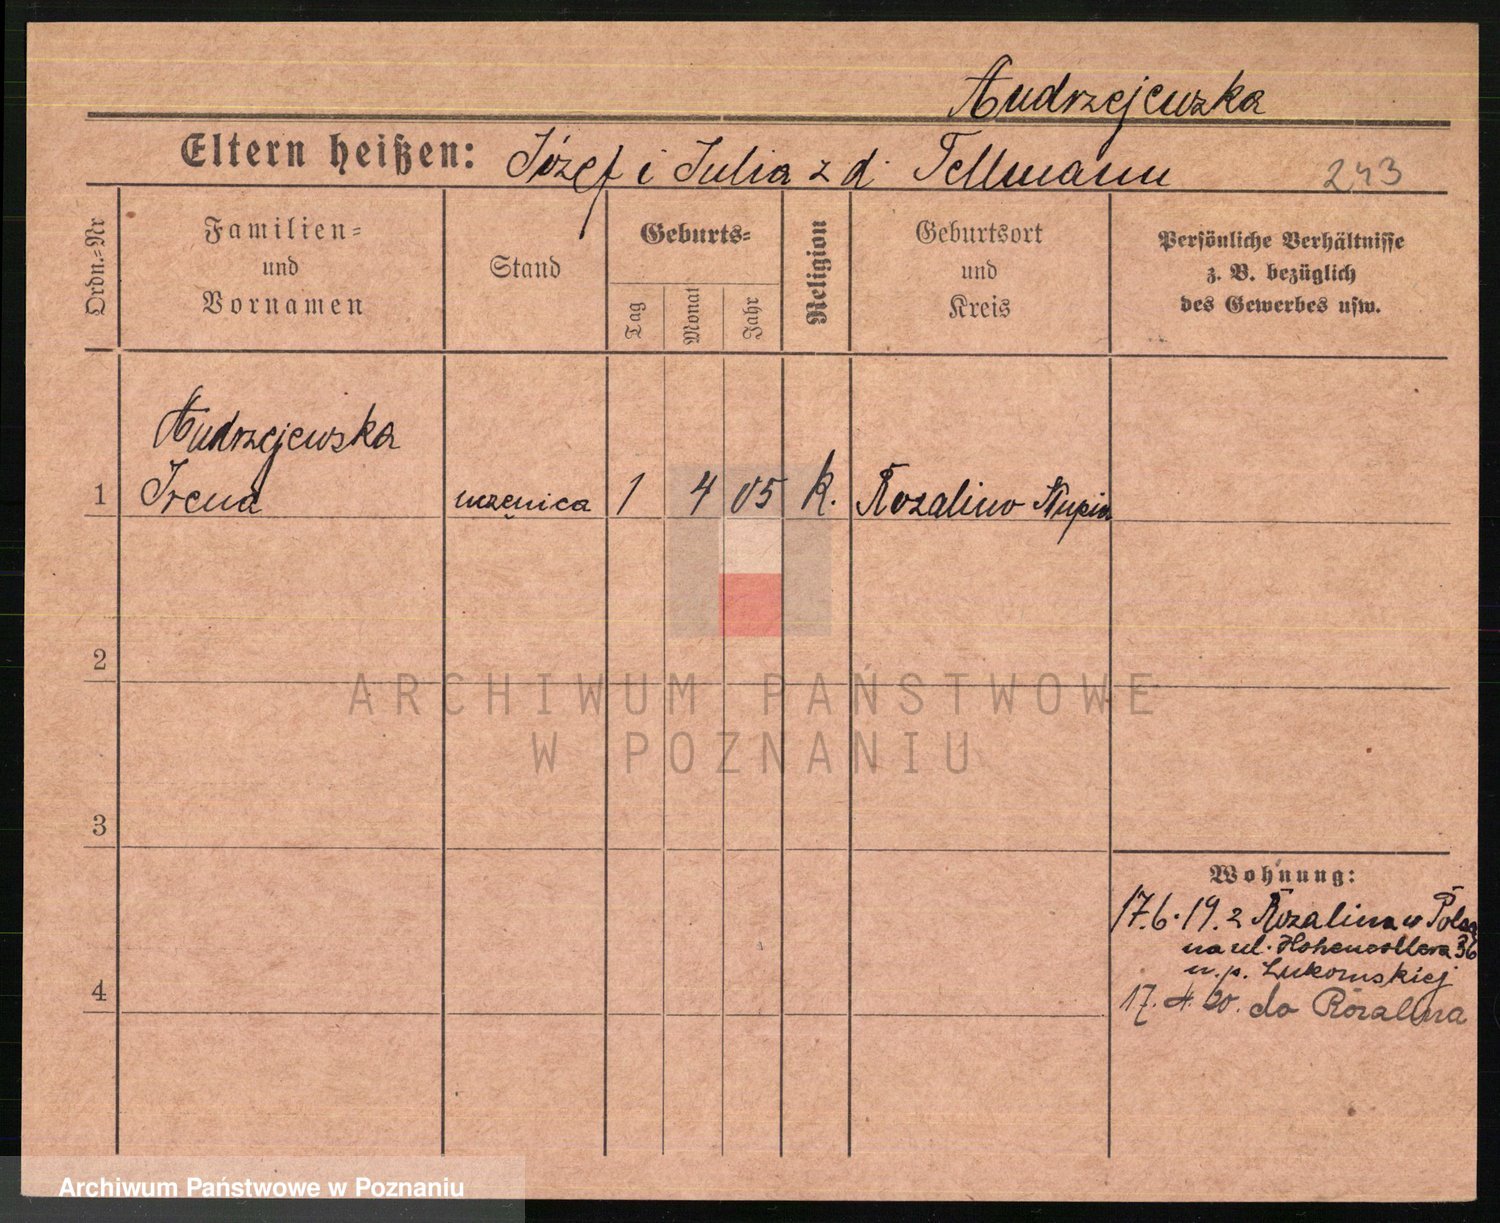 Andrzejewska
Eltern heißen: Józef i Julia z d. Tellmann 243
Ordn.-Nr
Familien-
und
Vornamen
Stand
Geburts-
Tag
Monat
Jahr
Religion
Geburtsort
und
Kreis
Persönliche Verhältnisse
z. B. bezüglich
des Gewerbes usw.
Andrzejewska
1 Irena uczenica 1 4 05 k. Rozalino
2
3
4
Wohnung:
17.6.19. z Rozalina
na ul. 36
u. p. Łukomskiej
17. 4. 20. do Rozalina
ARCHIWUM PAŃSTWOWE
W POZNANIU
Archiwum Państwowe w Poznaniu